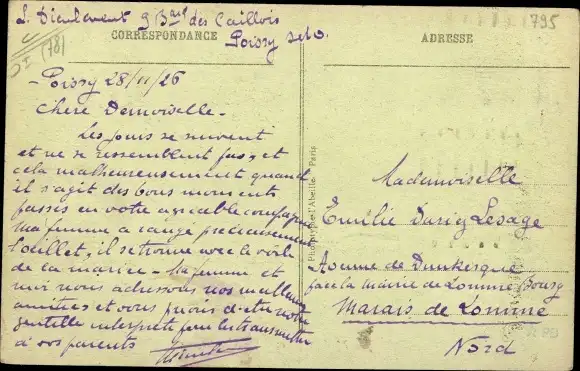 L. Dieulement 9 Bard des Caillois
Poissy S et O.
795
CORRESPONDANCE
ADRESSE
(78)
Poissy 28/11/26
Chere Demoiselle -
Les jours se suivent
et ne se ressemblent pas, et
cela malheureusement quand
il s'agit des bons moments
passés en votre agréable compagnie
Ma femme a rangé précieusement
l'œillet, il se trouve avec le voile
de la mariée - Ma femme et
moi vous adressons nos meilleures
amitiés et vous prions d'etre notre
gentille interprète pour les transmettre
à vos parents
Phototypie l'Abeille, Paris
Mademoiselle
Emilie Lesage
Avenue de Dunkerque
face la Mairie de Lomme Bourg
Marais de Lomme
Nord